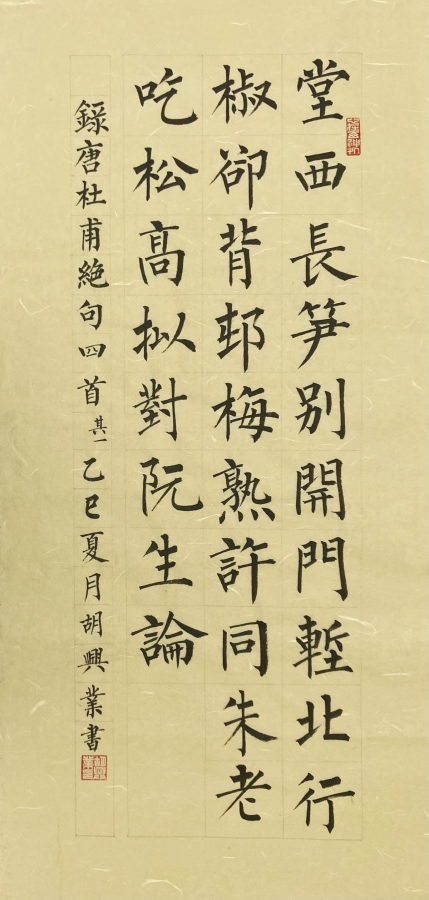 堂西長笋别開門塹北行
椒卻背邨梅熟許同朱老
吃松高擬對阮生論
錄唐杜甫絶句四首其一乙巳夏月胡興業書